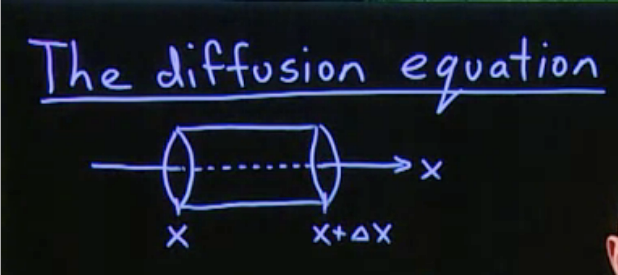 The diffusion equation
x
x x+Δx